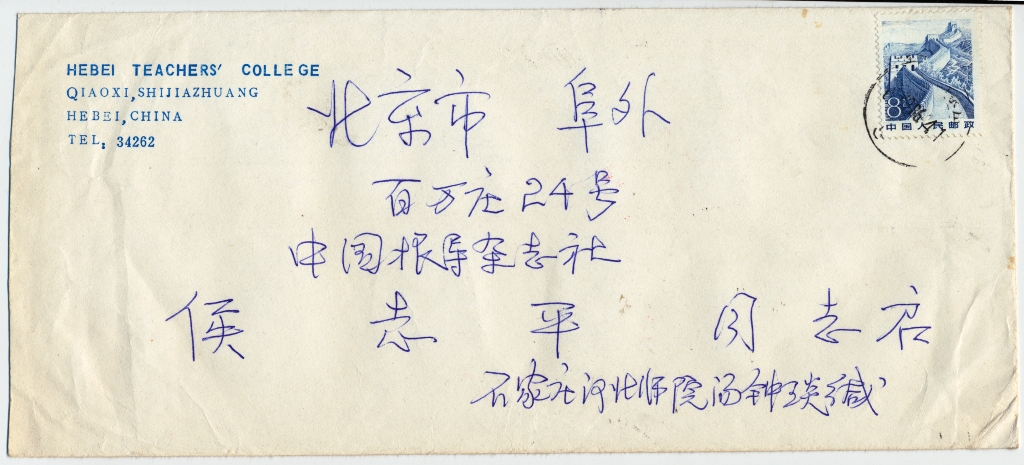 HEBEI TEACHERS' COLLEGE
QIAOXI,SHIJIAZHUANG
HEBEI,CHINA
TEL: 34262
8
中国人民邮政
北京市 阜外
百万庄24号
中国报导杂志社
侯志平 同志启
石家庄河北师院汤钟琰缄